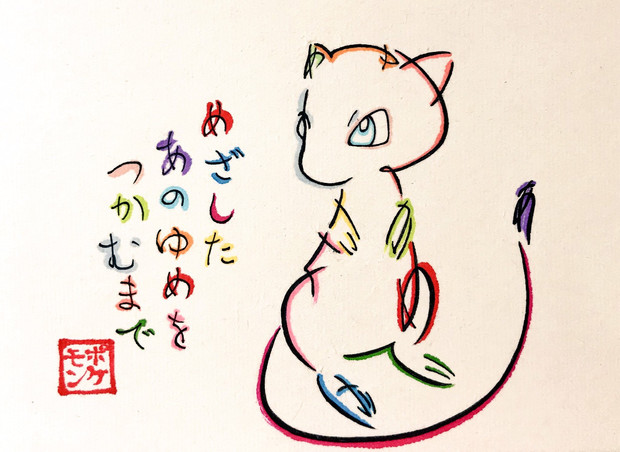 めざした
あのゆめを
つかむまで
ポケ
モン